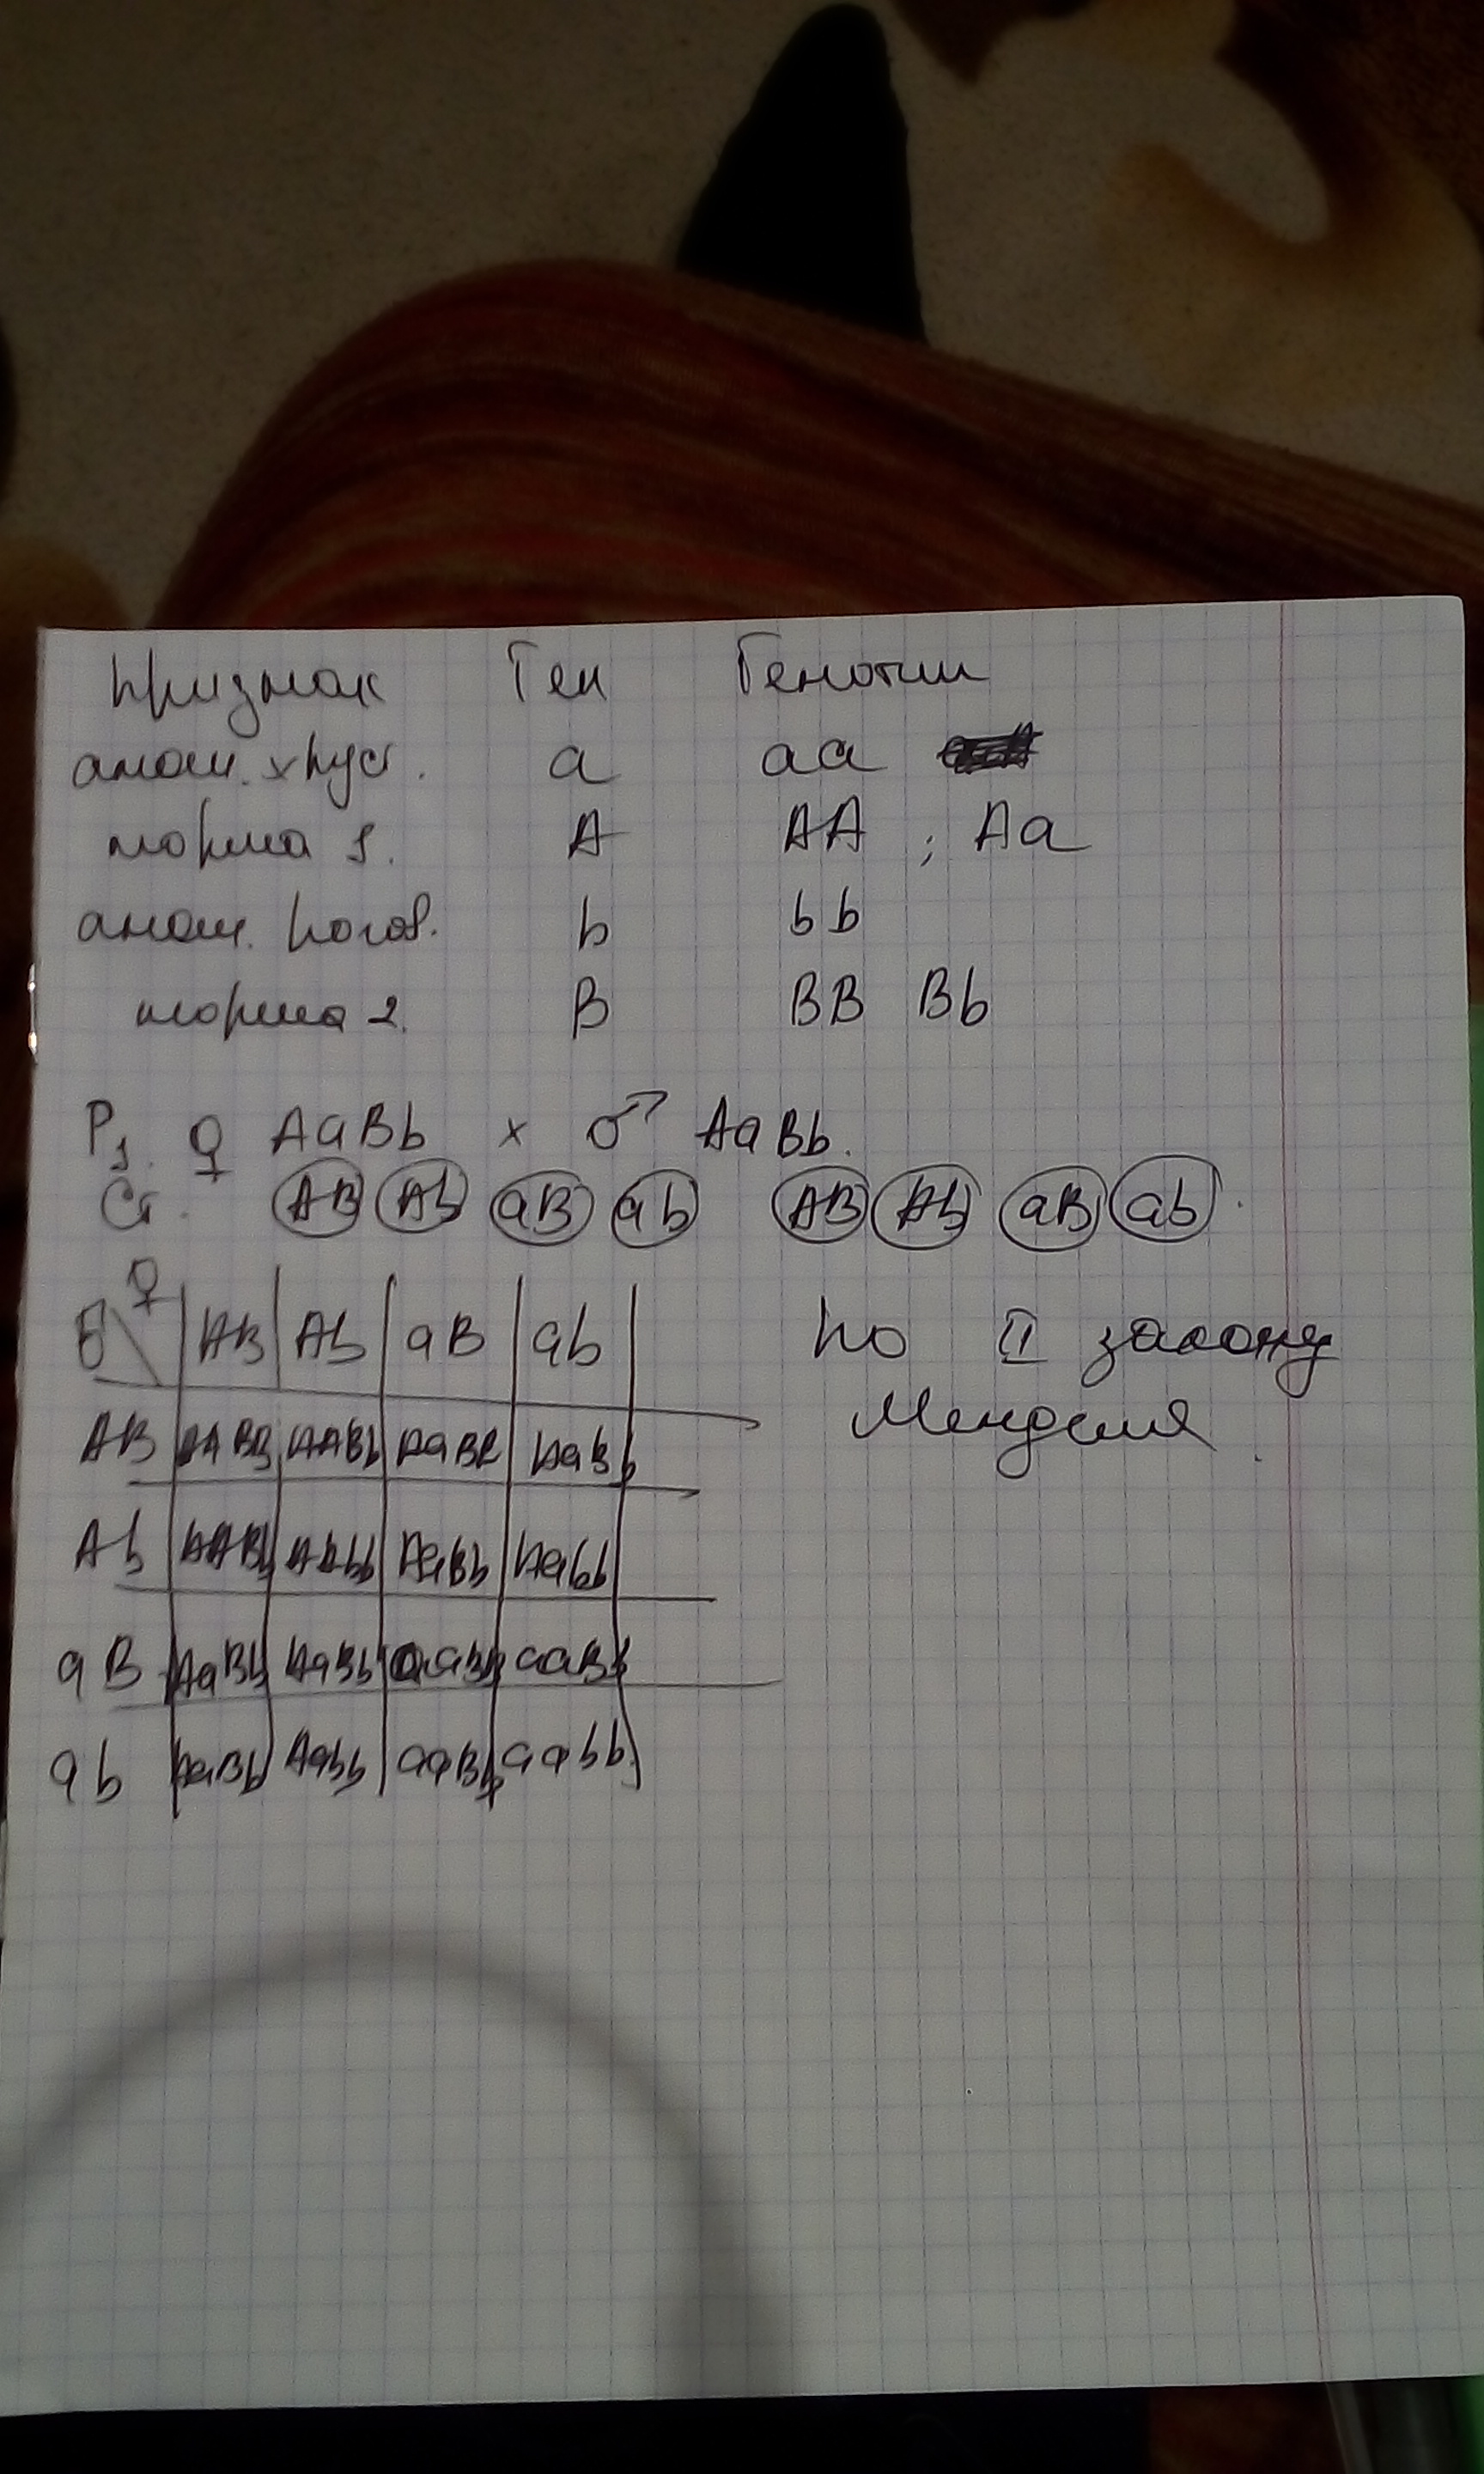 Признак Ген Генотип
аном. хрус. a aa
норма 1. A AA ; Aa
аном. рогов. b bb
норма 2. B BB Bb
P1. ♀ AaBb x ♂ AaBb.
G. AB Ab aB ab AB Ab aB ab.
♂ \ ♀ AB Ab aB ab
По II закону
Менделя
AB AABB AABb AaBB AaBb
Ab AABb AAbb AaBb Aabb
aB AaBb AaBb aaBb aaBb
ab AaBb Aabb aaBb aabb